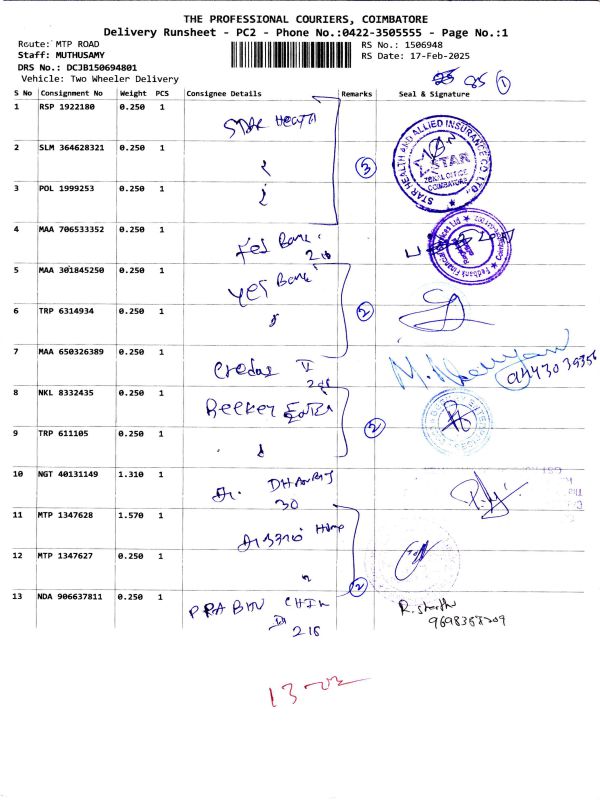 THE PROFESSIONAL COURIERS, COIMBATORE
Delivery Runsheet - PC2 - Phone No.:0422-3505555 - Page No.:1
Route: MTP ROAD
RS No.: 1506948
Staff: MUTHUSAMY
RS Date: 17-Feb-2025
DRS No.: DCJB150694801
Vehicle: Two Wheeler Delivery
85 1
S No Consignment No Weight PCS Consignee Details Remarks Seal & Signature
1 RSP 1922180 0.250 1 STAR HEALTH
STAR HEALTH AND ALLIED INSURANCE CO LTD.,
STAR
ZONAL OFFICE
COIMBATORE
2 SLM 364628321 0.250 1
3
3 POL 1999253 0.250 1
4 MAA 706533352 0.250 1 Fed Bank
Fedbank Financial Services Ltd
5 MAA 301845250 0.250 1 YES Bank
6 TRP 6314934 0.250 1
2
7 MAA 650326389 0.250 1 Credas
8 NKL 8332435 0.250 1
9 TRP 611105 0.250 1
2
10 NGT 40131149 1.310 1 Dr. DHANRAJ
30
11 MTP 1347628 1.570 1
12 MTP 1347627 0.250 1
2
13 NDA 906637811 0.250 1 PRABHU
216
13-02